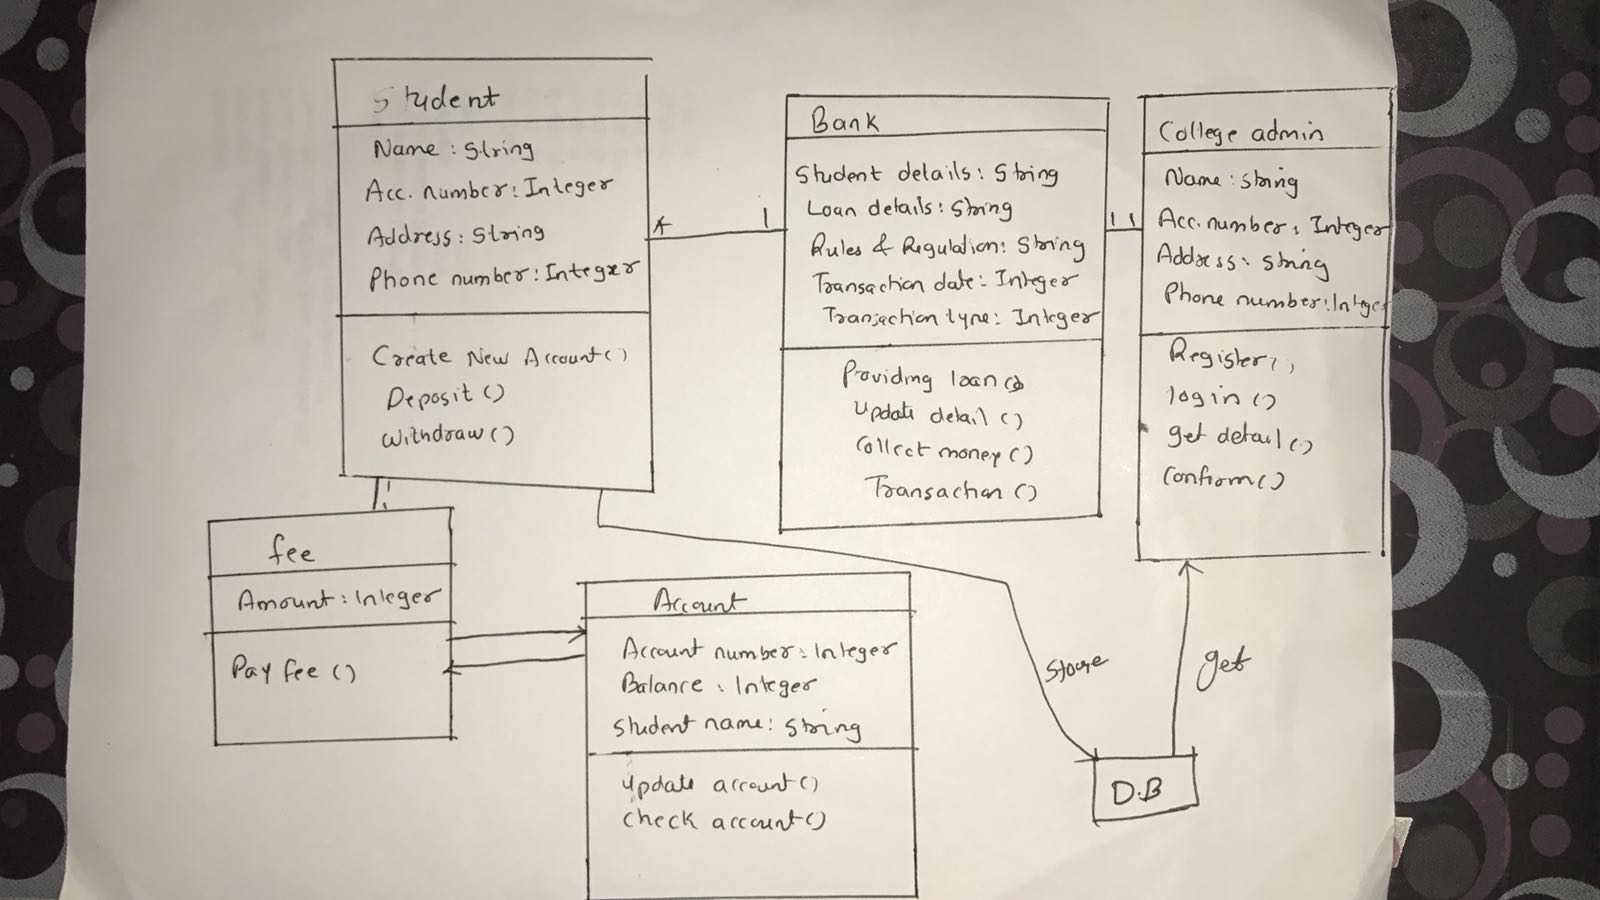 Student
Name : String
Acc. number : Integer
Address : String
Phone number : Integer
Create New Account ()
Deposit ()
Withdraw ()
*
1
Bank
Student details : String
Loan details : String
Rules & Regulation : String
Transaction date - Integer
Transaction type : Integer
Providing loan ()
Update detail ()
Collect money ()
Transaction ()
1 1
College admin
Name : String
Acc. number : Integer
Address : String
Phone number : Integer
Register ()
login ()
get detail ()
Confirm ()
fee
Amount : Integer
Pay fee ()
Account
Account number : Integer
Balance : Integer
Student name : String
Update account ()
Check account ()
Store
get
D.B